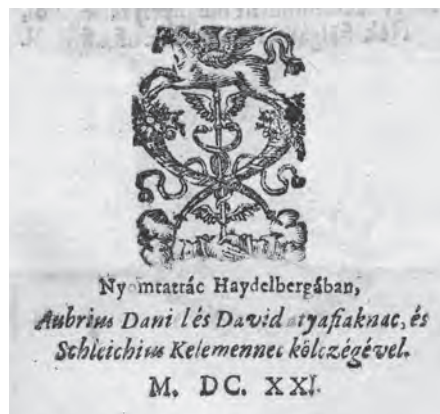 Nyomtattác Haydelbergában,
Aubrius Dani l és David atyafiaknac, és
Schleichius Kelemennec kölczégével.
M. DC. XXI.